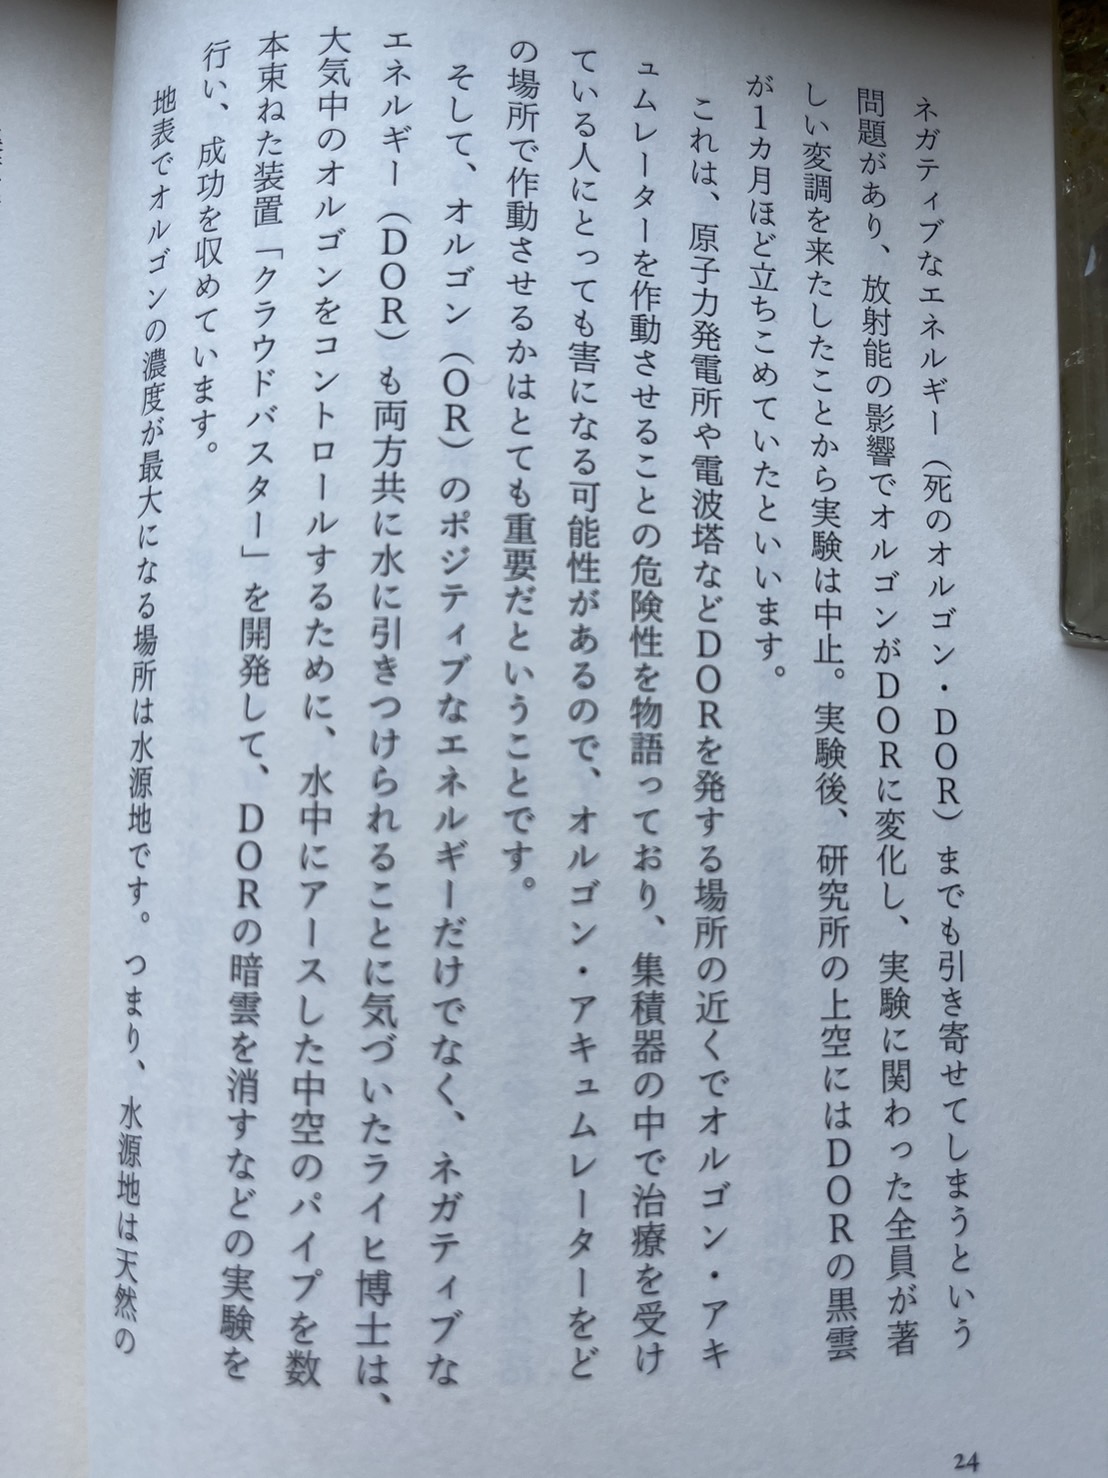 ネガティブなエネルギー（死のオルゴン・DOR）までも引き寄せてしまうという
問題があり、放射能の影響でオルゴンがDORに変化し、実験に関わった全員が著
しい変調を来たしたことから実験は中止。実験後、研究所の上空にはDORの黒雲
が1カ月ほど立ちこめていたといいます。
これは、原子力発電所や電波塔などDORを発する場所の近くでオルゴン・アキ
ュムレーターを作動させることの危険性を物語っており、集積器の中で治療を受け
ている人にとっても害になる可能性があるので、オルゴン・アキュムレーターをど
の場所で作動させるかはとても重要だということです。
そして、オルゴン（OR）のポジティブなエネルギーだけでなく、ネガティブな
エネルギー（DOR）も両方共に水に引きつけられることに気づいたライヒ博士は、
大気中のオルゴンをコントロールするために、水中にアースした中空のパイプを数
本束ねた装置「クラウドバスター」を開発して、DORの暗雲を消すなどの実験を
行い、成功を収めています。
地表でオルゴンの濃度が最大になる場所は水源地です。つまり、水源地は天然の
24